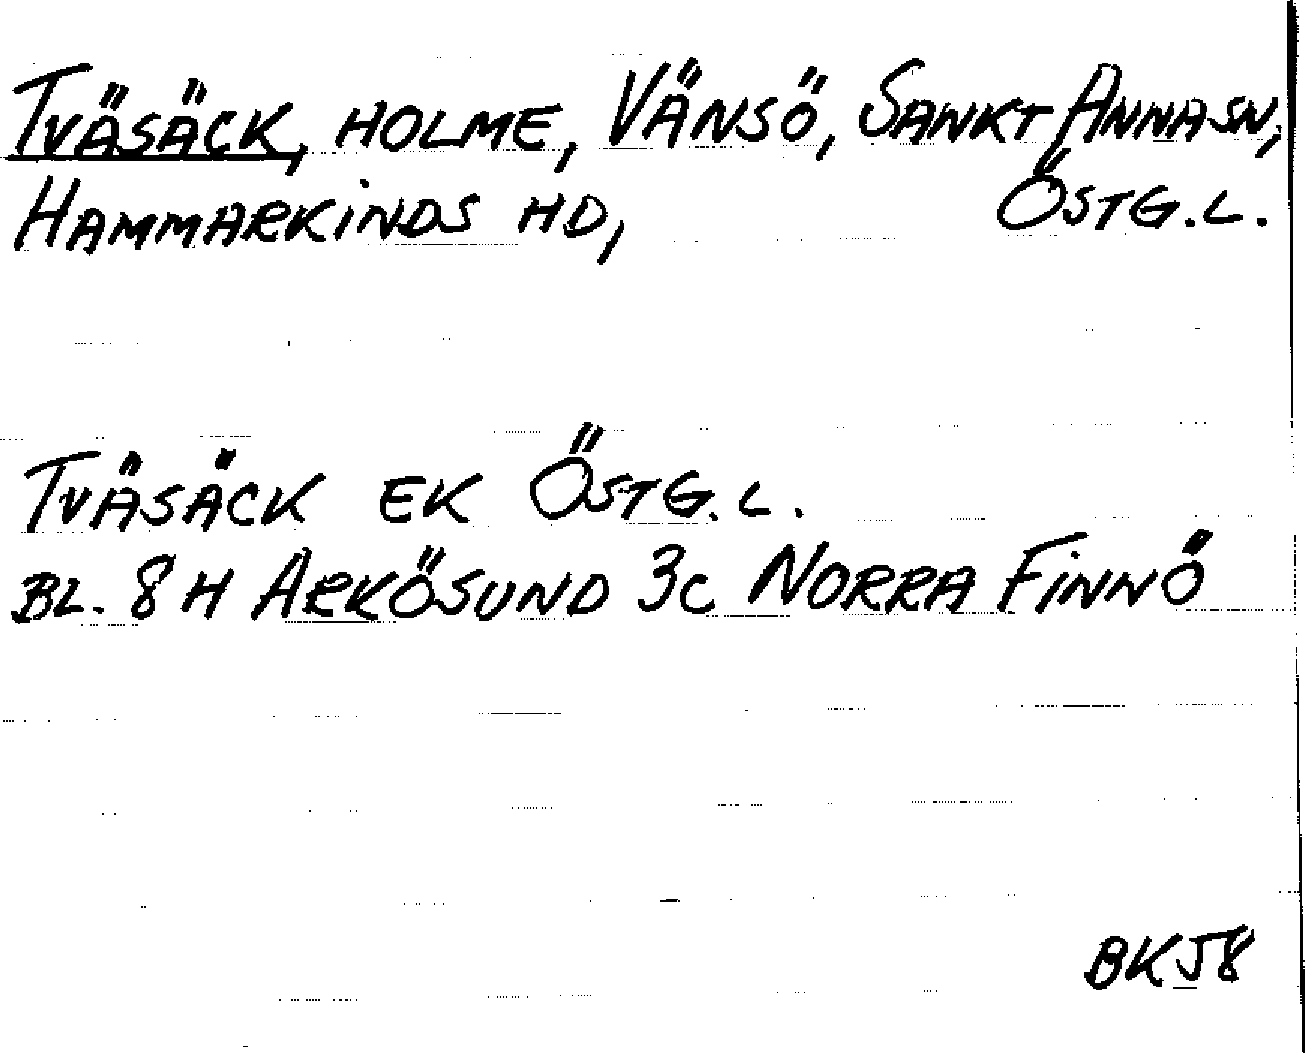 TVÄSÄCK, HOLME, VÄNSÖ, SANKT ANNA SN,
HAMMARKINDS HD, ÖSTG.L.
TVÄSÄCK EK ÖSTG.L.
BL. 8H ARKÖSUND 3C NORRA FINNÖ
BK58